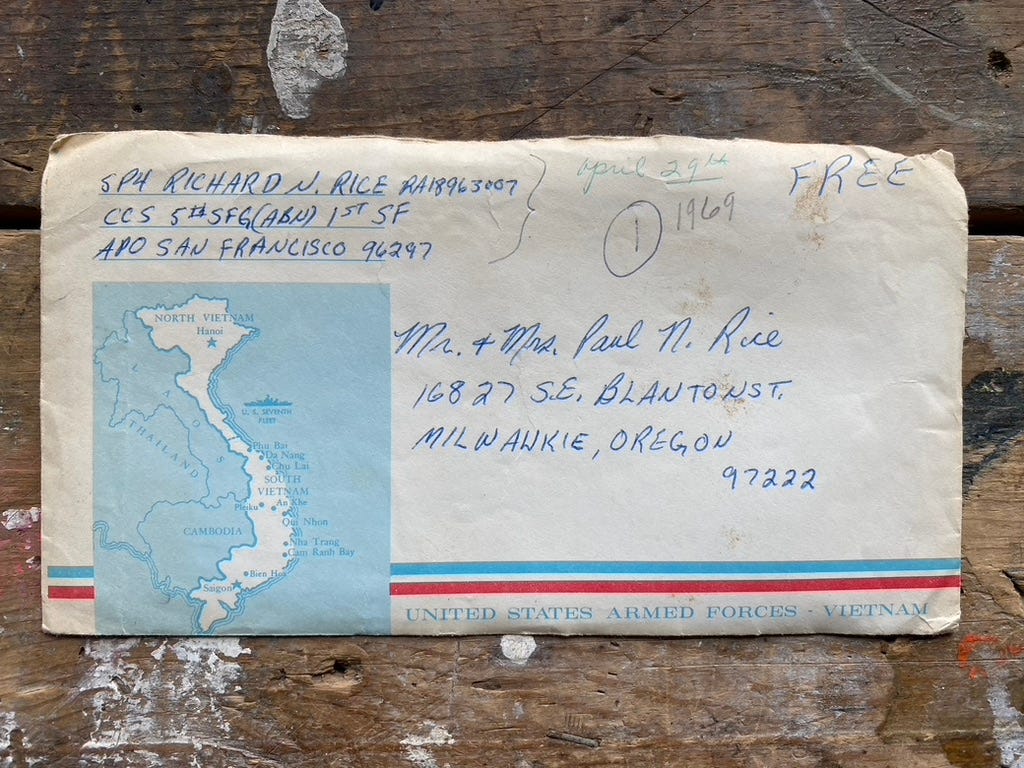 SP4 RICHARD N. RICE RA18963007
CCS 5th SFG (ABN) 1ST SF
APO SAN FRANCISCO 96297
April 29th
1969
1
FREE
Mr. & Mrs. Paul N. Rice
16827 S.E. BLANTON ST.
MILWAUKIE, OREGON
97222
NORTH VIETNAM
Hanoi
LAOS
U. S. SEVENTH
FLEET
THAILAND
Phu Bai
Da Nang
Chu Lai
SOUTH
VIETNAM
Pleiku
An Khe
Qui Nhon
CAMBODIA
Nha Trang
Cam Ranh Bay
Bien Hoa
Saigon
UNITED STATES ARMED FORCES - VIETNAM